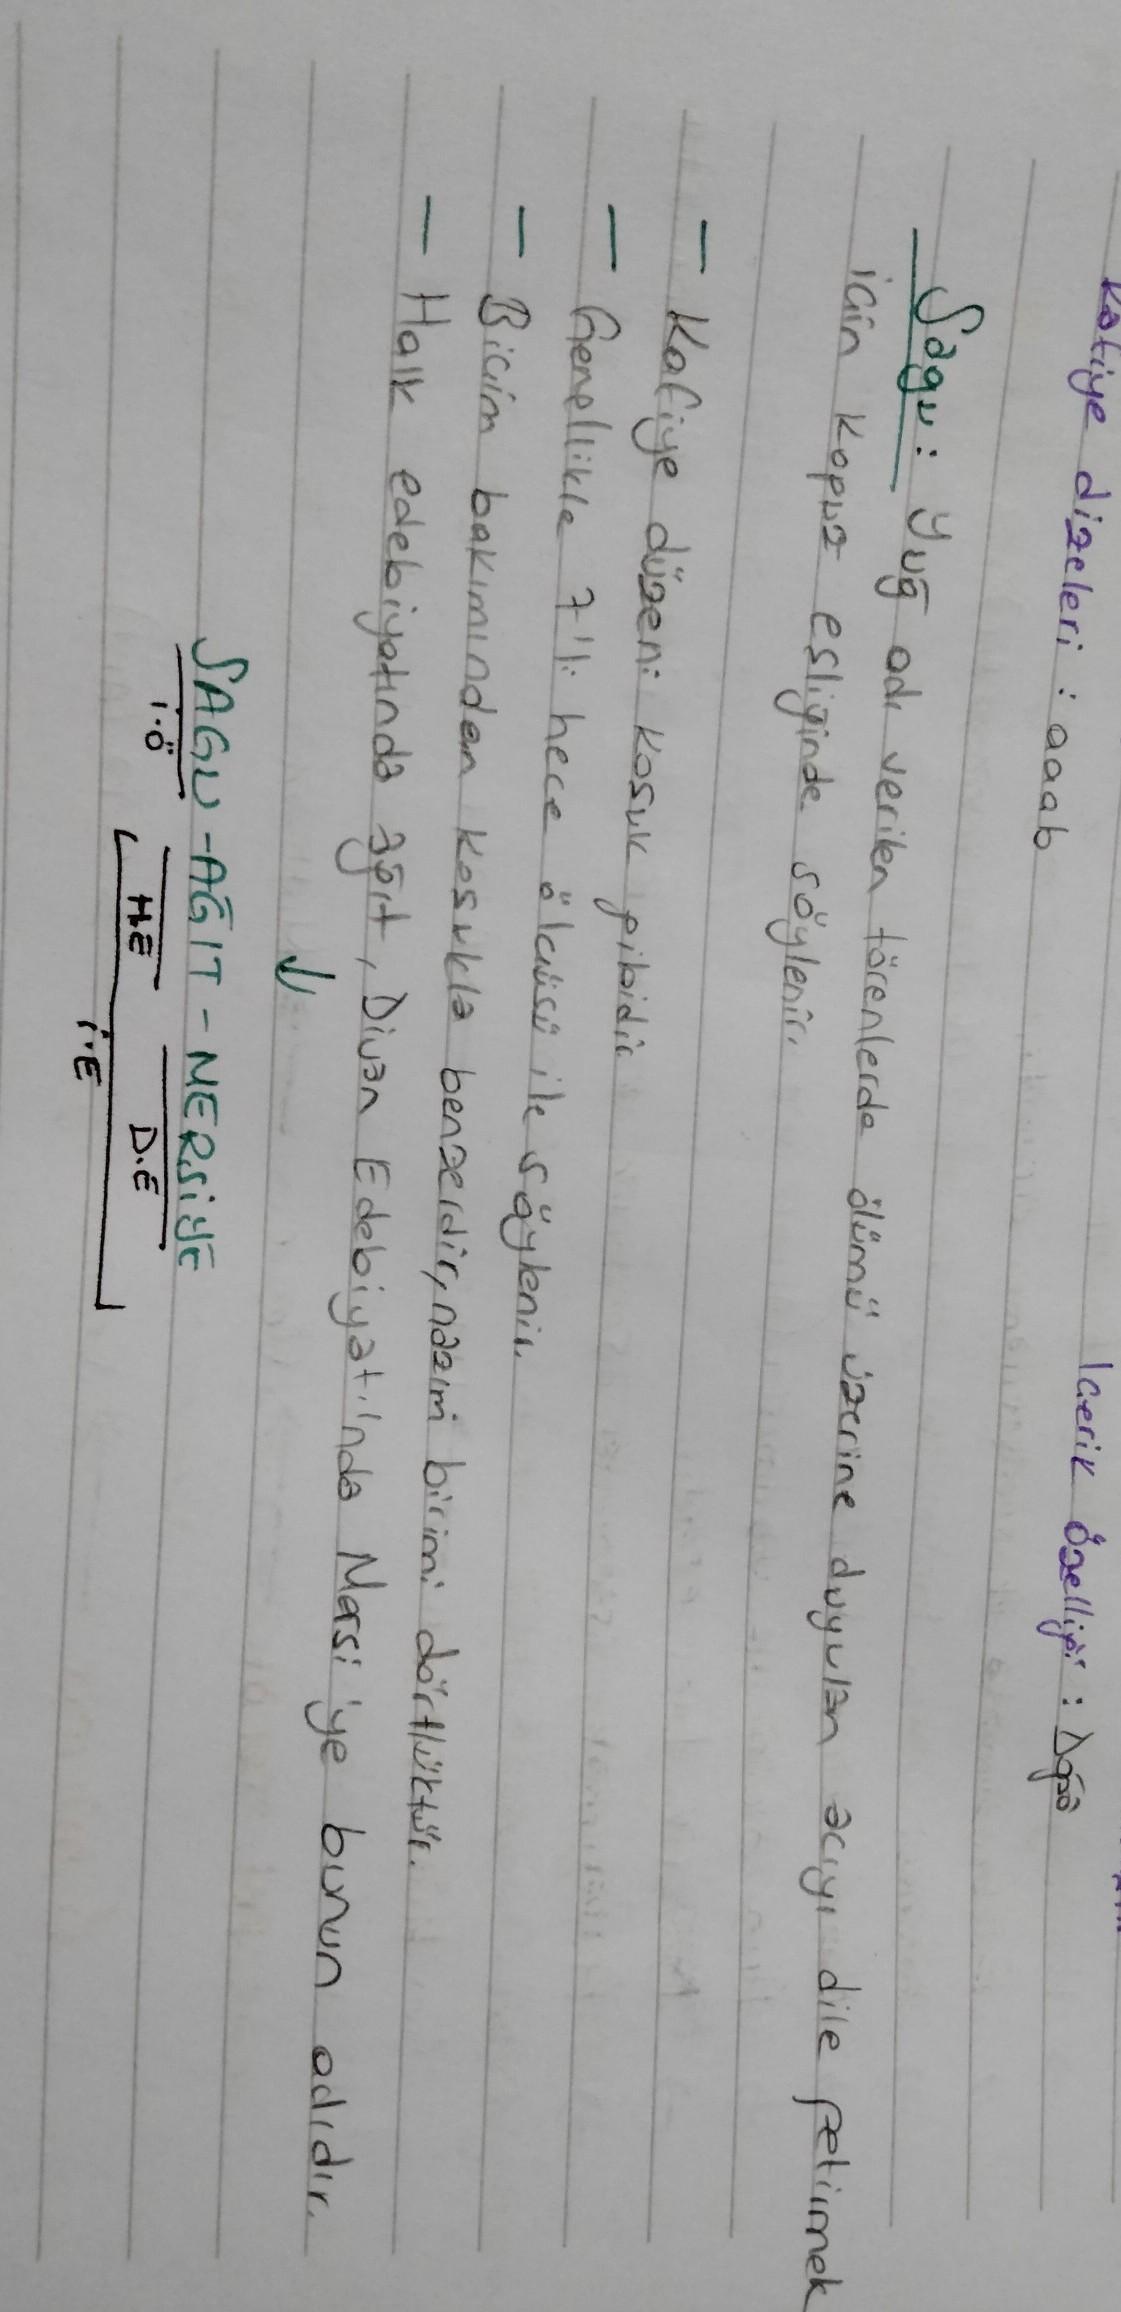 Kafiye dizeleri : aaab
İçerik özelliği : Doğa
Sagu : Yuğ adı verilen törenlerde ölümü üzerine duyulan acıyı dile getirmek
için kopuz esliğinde söylenir.
— Kafiye düzeni kosuk gibidir
— Genellikle 7'li hece ölçüsü ile söylenir.
— Biçim bakımından kosukla benzerdir, nazım birimi dörtlüktür.
— Halk edebiyatında ağıt, Divan Edebiyatı'nda Mersi'ye bunun adıdır.
↓
SAGU - AĞIT - MERSİYE
İ.Ö HE D.E
İ.E